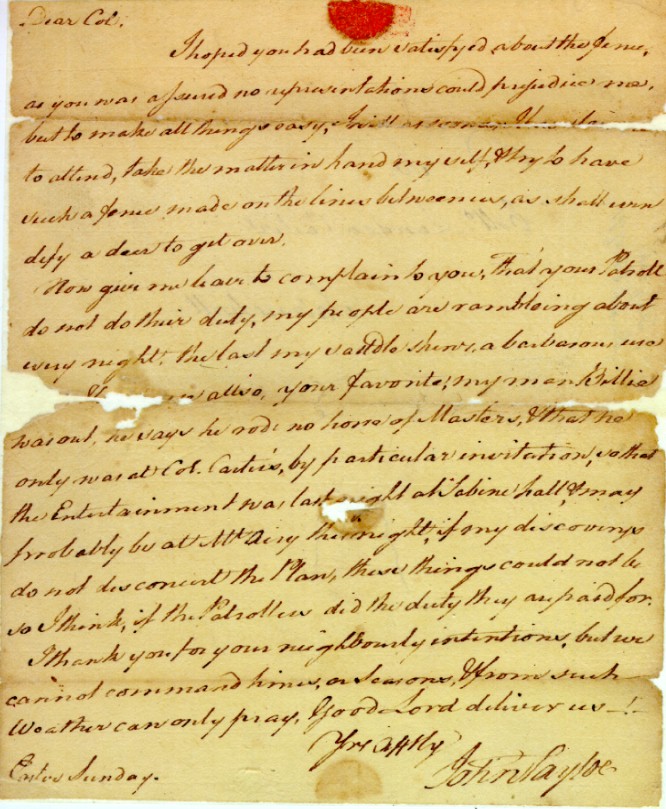 Dear Col.
I hoped you had been satisfyed about the fence,
as you was assured no representations could prejudice me,
but to make all things easy, I will as soon as
to attend, take the matter in hand my self, & try to have
such a fence made on the lines between us, as shall even
defy a deer to get over.
Now give me leave to complain to you, that your Patroll
do not do their duty, my people are rambleing about
every night. the last my saddle shews, a barbarous use
allso, your favorite, my man Billie
was out, he says he rode no horse of Masters, & that he
only was at Col. Carters, by particular invitation, so that
the Entertainment was last night at Sabine hall, & may
probably be at Mt. Airy this night, if my discoverys
do not disconcert the Plan, these things could not be
so I think, if the Patrollers did the duty they are paid for.
I thank you for your neighbourly intentions, but we
cannot command times, or seasons, & from such
Weather can only pray, Good Lord deliver us —!—
Yrs afftly
John Tayloe
Easter Sunday.